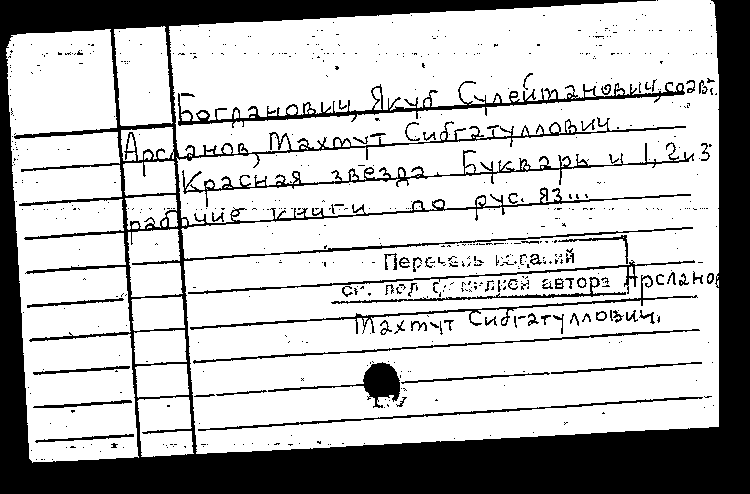 Богданович, Якуб Сулейтанович, соавт.
Арсланов, Махтут Сибгатуллович.
Красная звезда. Букварь и 1, 2 и 3
рабочие книги по рус. яз...
Перечень изданий
см. под фамилией автора Арсланов
Махтут Сибгатуллович.